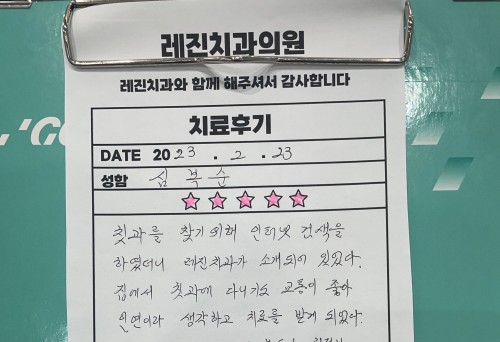 레진치과의원
레진치과와 함께 해주셔서 감사합니다
치료후기
DATE 2023 . 2 . 23
성함 심복순
칫과를 찾기 위해 인터넷 검색을
하였더니 레진치과가 소개되어 있었다.
집에서 칫과에 다니기도 교통이 좋아
인연이라 생각하고 치료를 받게 되었다.